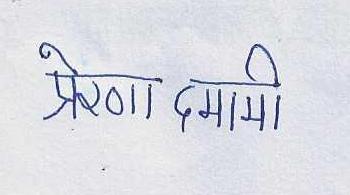 प्रेरणा दमामी